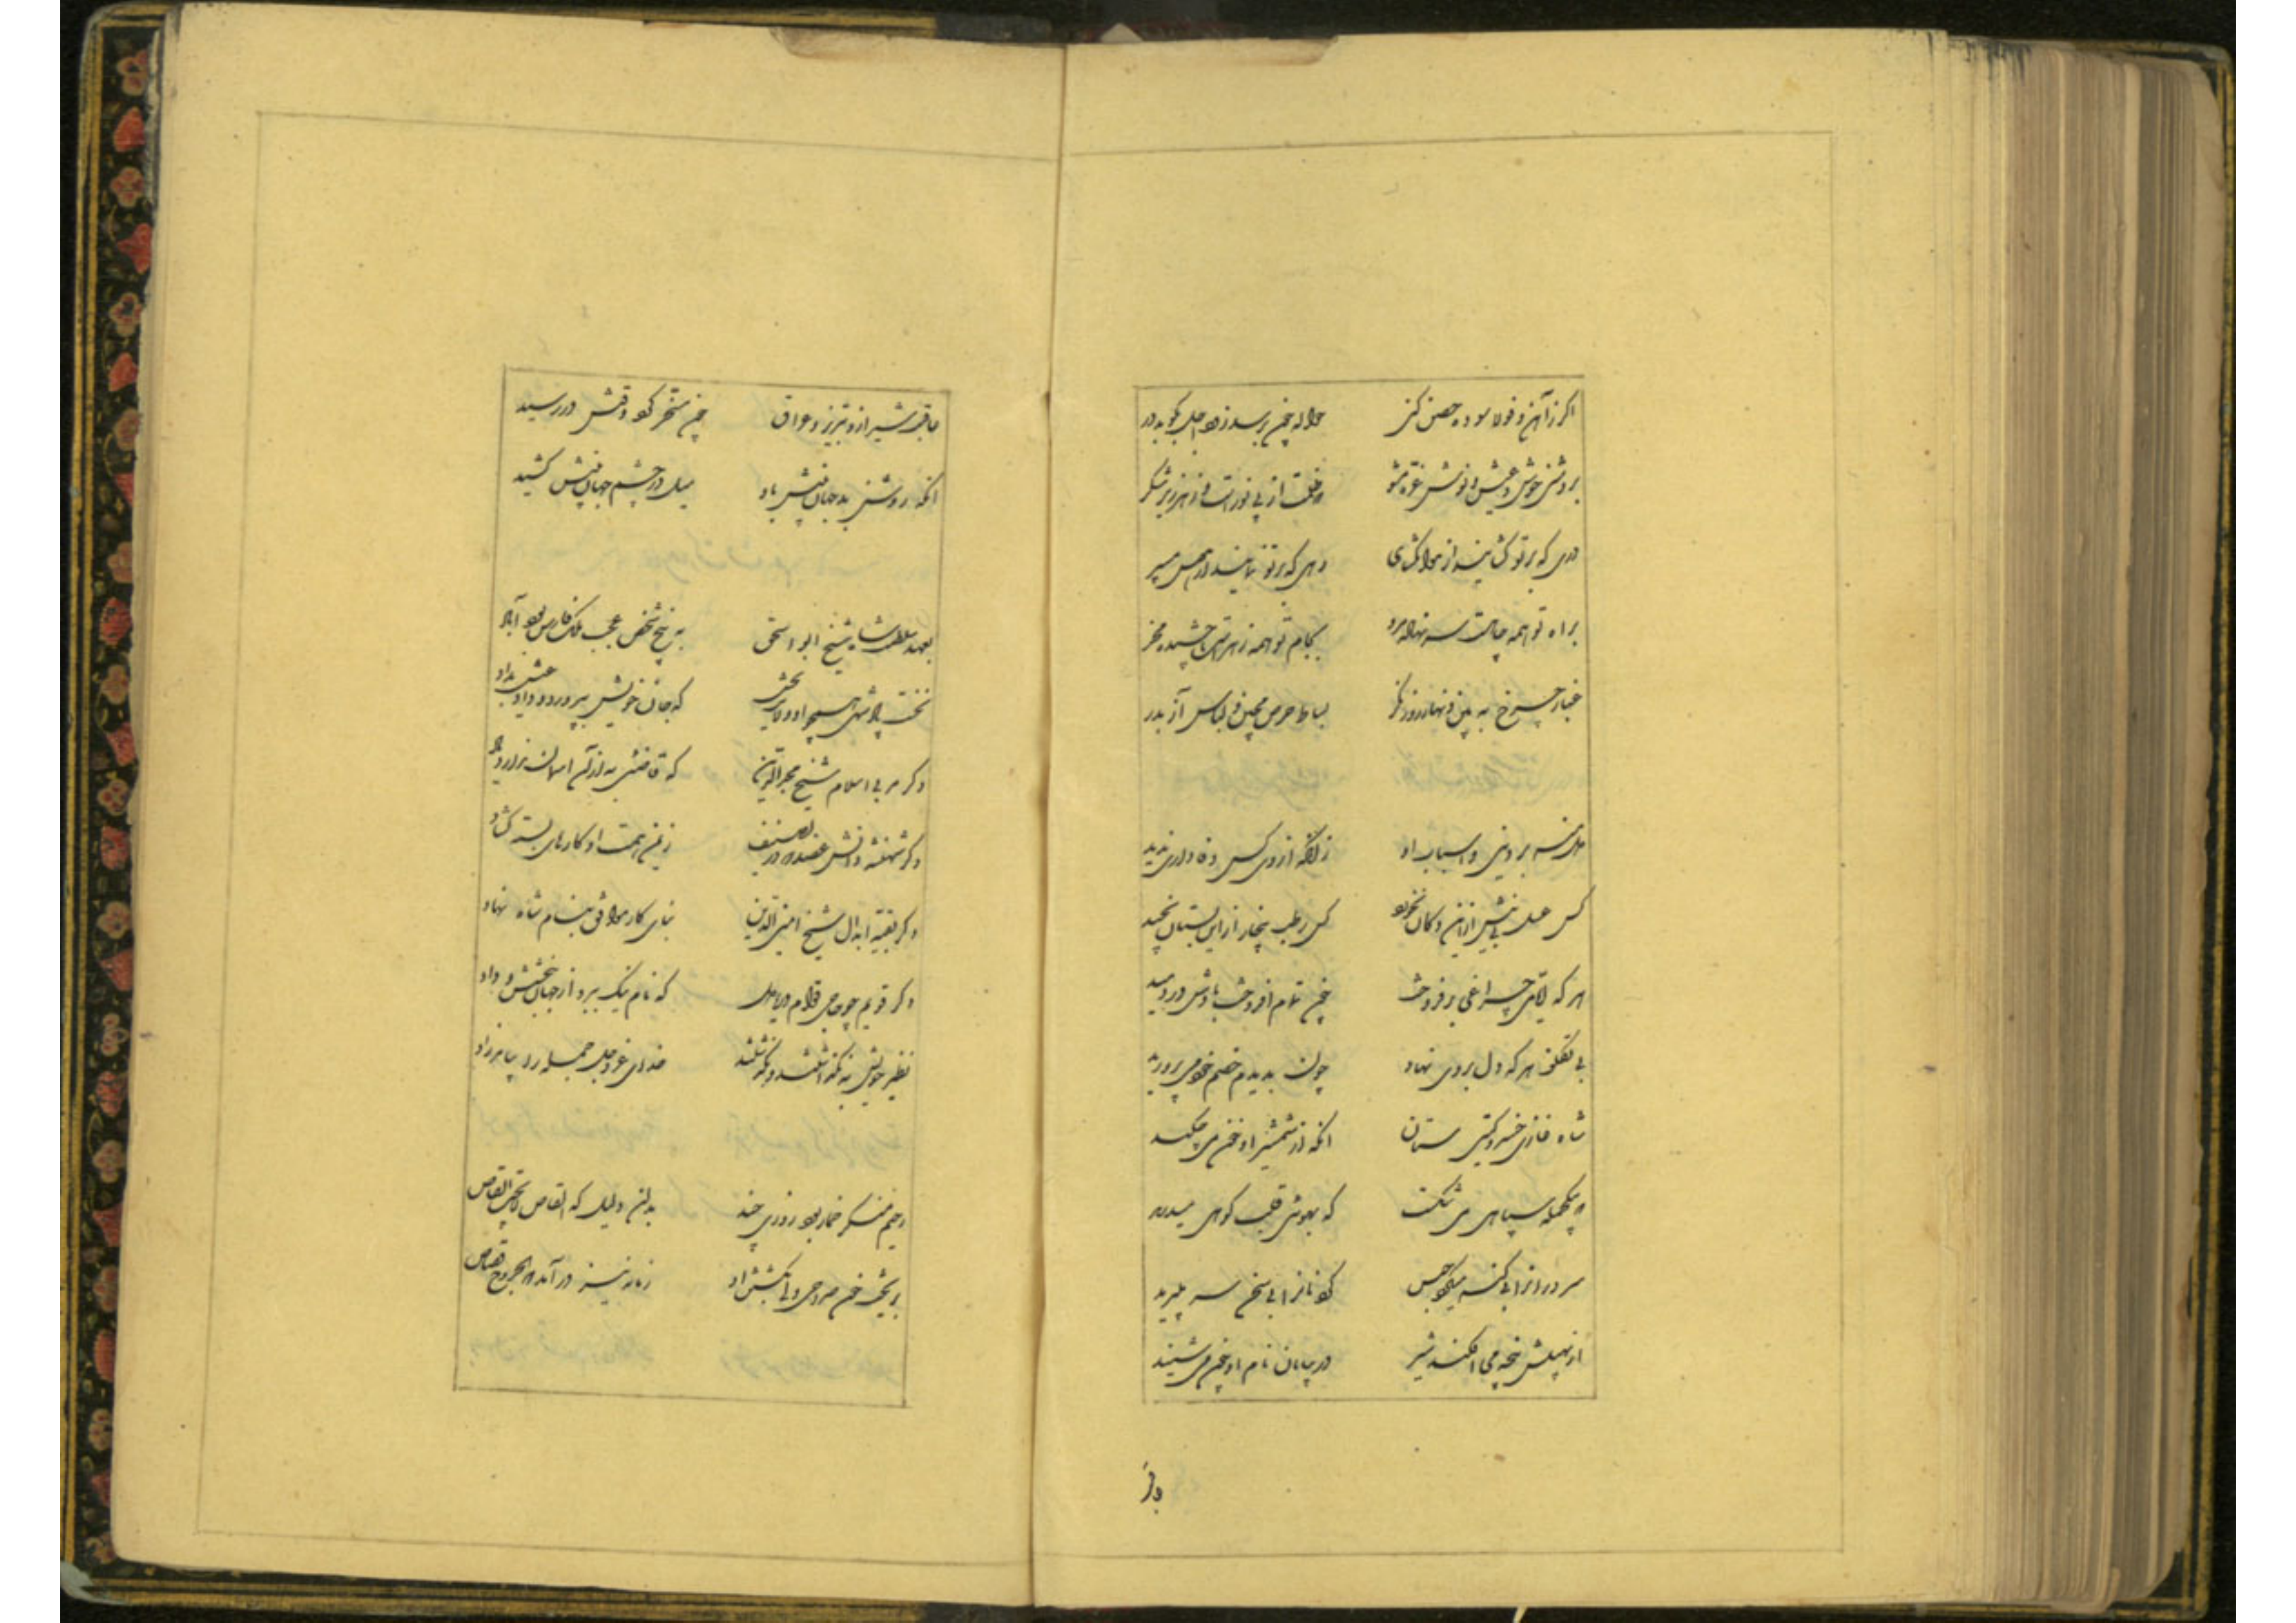 اکر ز آهن و فولاد سوده حصن کنی حواله چون برسد زود اجل بکوبد در
بروشنی خوش و عیش و نوشش غره مشو که ظلمت از پی نورست و زهر زیر شکر
دری که بر تو کشایند از هوا مکشای رهی که بر تو نمایند از هوس مسپر
براه تو همه چاهست سر نهاده مرو بکام تو همه زهرست ناچشیده مخور
غبار چرخ ببین و نهاد روز نکر بساط حرص بچین و لباس آز بدر
دل منه بر دنیی و اسباب او زانکه از وی کس وفاداری ندید
کس عسل بی نیش ازین دکان نخورد کس رطب بی خار ازین بستان نچید
هر که ایامی چراغی بر فروخت چون تمام افروخت بادش در دمید
بی تکلف هر که دل بر وی نهاد چون بدیدم خصم خود می پرورید
شاه غازی خسرو کیتی ستان انکه از شمشیر او خون می چکید
که بیکحمله سپاهی می شکست که بهویی قلب کوهی میدرید
سروران را بی کنه میکرد حبس کردنان را بی سخن سر میبرید
از نهیبش پنجه می افکند شیر در بیابان نام او چون می شنید
عاقبت شیراز و تبریز و عراق چون مسخر کرد وقتش در رسید
انکه روشن بد جهان بینش باو میل در چشم جهان بینش کشید
بعهد سلطنت شاه شیخ ابو اسحق به پنج شخص عجب ملک فارس بود آباد
نخست پادشهی همچو او ولایت بخش که جان خویش بپرورد و داد عیش بداد
دکر مربی اسلام شیخ مجد الدین که قاضیی به از آن آسمان ندارد یاد
دکر شهنشه دانش عضد که در تصنیف
دکر بقیه ابدال شیخ امین الدین زیمن همت او کارهای بسته کشاد
بنای کار مواقف بنام شاه نهاد
دکر قویم چو حاجی قوام دریا دل که نام نیک ببرد از جهان ببخشش و داد
نظیر خویش نه بکذاشتند و بکذشتند خدای عز و جل جمله را بیامرزاد
رحیم منکر خمار بود روزی چند بدان دلیل که القاص لا یحب القاص
بریخت خون صراحی و بکشتش او زمانه نیز در آمد که الجروح قصاص
وقر